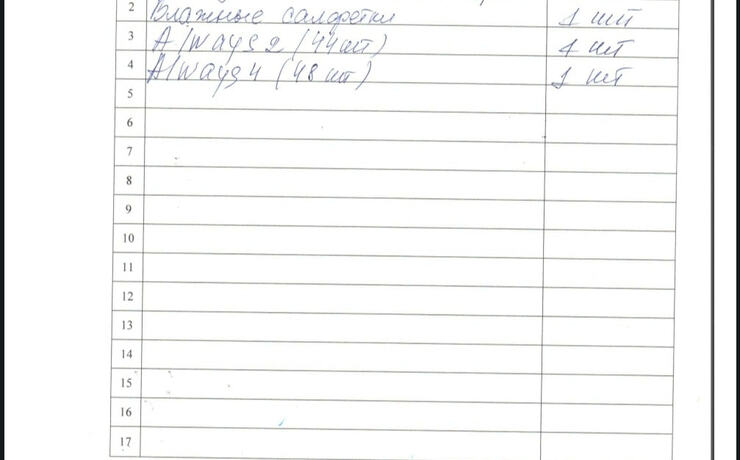 2 Влажные салфетки 1 шт
3 Always 2 (44шт) 1 шт
4 Always 4 (48 шт) 1 шт
5
6
7
8
9
10
11
12
13
14
15
16
17